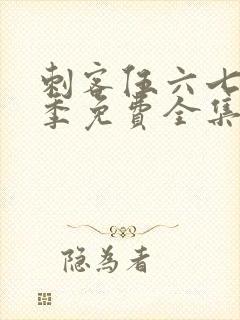 刺客伍六七
季免费全集
隐为者